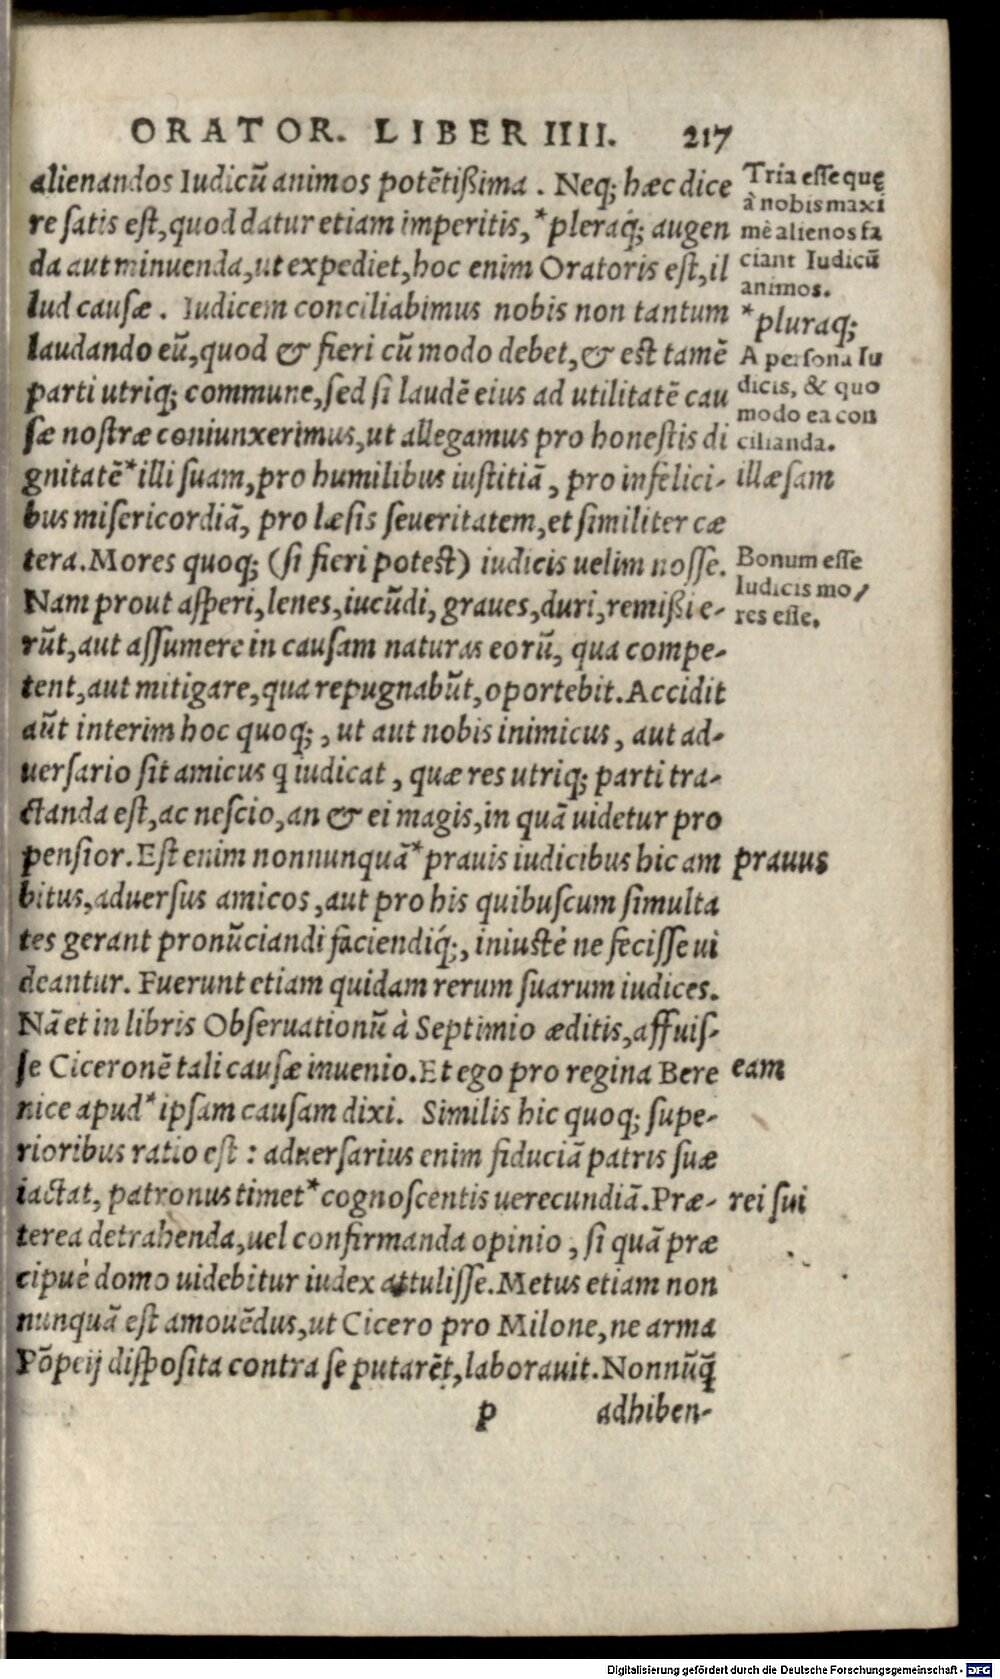 ORATOR. LIBER IIII. 217
alienandos Iudicū animos potētißima. Neq; hæc dice
re satis est, quod datur etiam imperitis, *pleraq; augen
da aut minuenda, ut expediet, hoc enim Oratoris est, il
lud causæ. Iudicem conciliabimus nobis non tantum
laudando eū, quod & fieri cū modo debet, & est tamē
parti utriq; commune, sed si laudē eius ad utilitatē cau
sæ nostræ coniunxerimus, ut allegamus pro honestis di
gnitatē *illi suam, pro humilibus iustitiā, pro infelici-
bus misericordiā, pro læsis seueritatem, et similiter cæ
tera. Mores quoq; (si fieri potest) iudicis uelim nosse.
Nam prout asperi, lenes, iucūdi, graues, duri, remißi e-
rūt, aut assumere in causam naturas eorū, qua compe-
tent, aut mitigare, qua repugnabūt, oportebit. Accidit
aūt interim hoc quoq;, ut aut nobis inimicus, aut ad-
uersario sit amicus q iudicat, quæ res utriq; parti tra-
ctanda est, ac nescio, an & ei magis, in quā uidetur pro
pensior. Est enim nonnunquā *prauis iudicibus hic am
bitus, aduersus amicos, aut pro his quibuscum simulta
tes gerant pronūciandi faciendiq́;, iniustè ne fecisse ui
deantur. Fuerunt etiam quidam rerum suarum iudices.
Nā et in libris Obseruationū à Septimio æditis, affuis-
se Ciceronē tali causæ inuenio. Et ego pro regina Bere
nice apud *ipsam causam dixi. Similis hic quoq; supe-
rioribus ratio est: aduersarius enim fiduciā patris suæ
iactat, patronus timet *cognoscentis uerecundiā. Præ-
terea detrahenda, uel confirmanda opinio, si quā præ
cipuè domo uidebitur iudex attulisse. Metus etiam non
nunquā est amouēdus, ut Cicero pro Milone, ne arma
Pōpeij disposita contra se putarēt, laborauit. Nonnūq̄
p adhiben-
Tria esse quę
à nobis maxi
mè alienos fa
ciant Iudicū
animos.
*pluraq;
A persona Iu
dicis, & quo
modo ea con
cilianda.
illæsam
Bonum esse
Iudicis mo/
res esse.
prauus
eam
rei sui
Digitalisierung gefördert durch die Deutsche Forschungsgemeinschaft - DFG